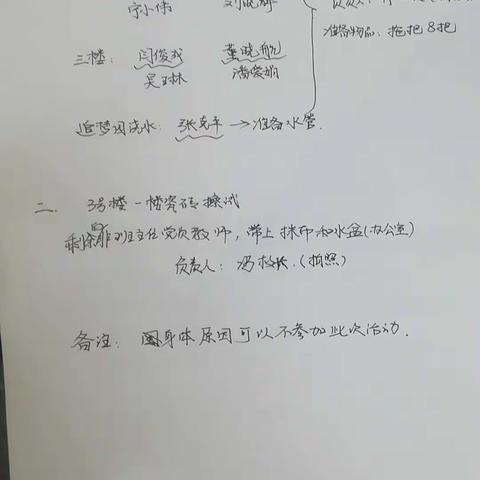 宁小伟
准备物品：拖把8把
三楼：闫俊成 董晓航
吴玉林 潘爱娟
追梦园洗水：张克平→准备水管.
二、3号楼一楼瓷砖擦试
剩余非班主任党员教师，带上抹布和水盆(办公室)
负责人：冯校长.(拍照)
备注：因身体原因可以不参加此次活动.